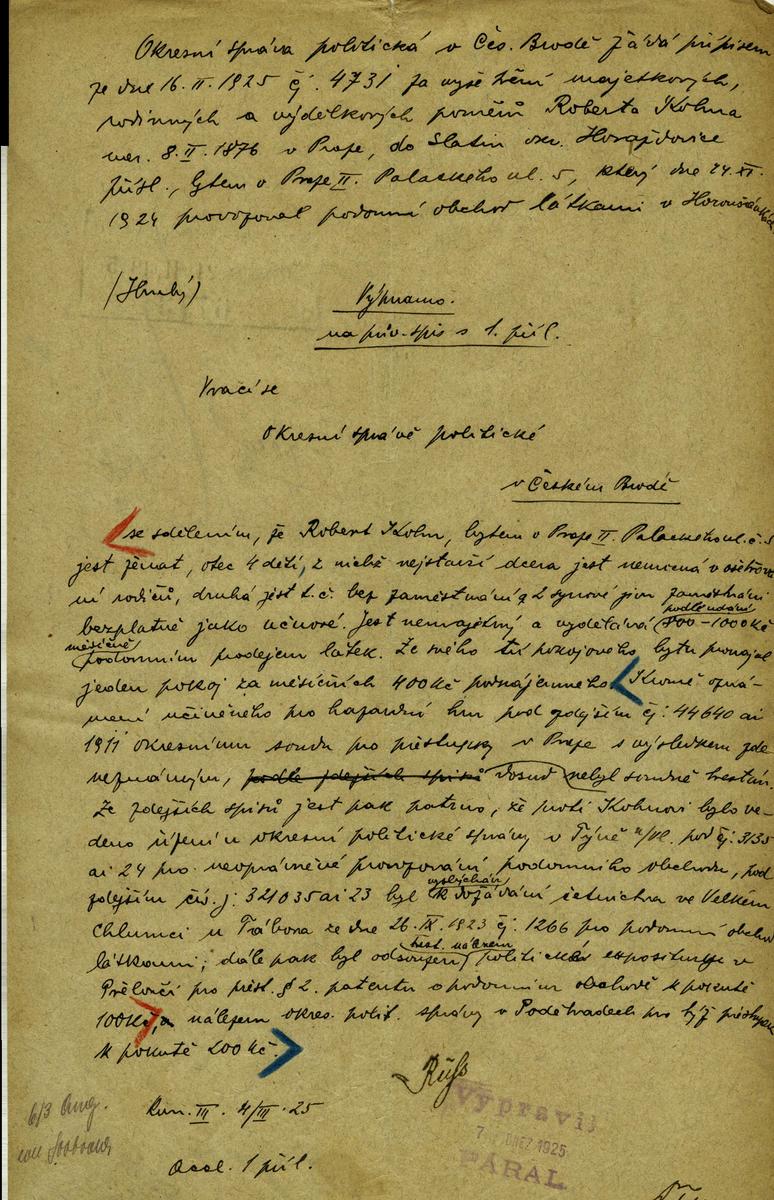 Okresní správa politická v Čes. Brodě žádá přípisem
ze dne 16. II. 1925 čj. 4731 za vyšetření majetkových,
rodinných a výdělkových poměrů Roberta Kohna
nar. 8. II. 1876 v Praze, do Slatin okr. Horažďovice
přísl., bytem v Praze II. Palackého ul. 5, který dne 24. XI.
1924 provozoval podomní obchod látkami v
Vypsano.
na pův. spis s 1. příl.
Vrací se
Okresní správě politické
v Českém Brodě
se sdělením, že Robert Kohn, bytem v Praze II. Palackého ul. č. 5
jest ženat, otec 4 dětí, z nichž nejstarší dcera jest nemocná v ošetřová-
ní rodičů, druhá jest t. č. bez zaměstnání a 2 synové jsou zaměstnáni
bezplatně jako učňové. Jest nemajetný a vydělává podle udání 800-1000 Kč
měsíčně podomním prodejem látek. Ze svého tří pokojového bytu pronajal
jeden pokoj za měsíčních 400 Kč podnájemného. Kromě ozná-
mení učiněného pro hazardní hru pod zdejším čj: 44640 ai
1911 okresnímu soudu pro přestupky v Praze s výsledkem zde
neznámým, podle zdejších spisů dosud nebyl soudně trestán.
Ze zdejších spisů jest pak patrno, že proti Kohnovi bylo ve-
deno řízení u okresní politické správy v Týně n/Vl. pod čj: 3135
ai 24 pro neoprávněné provozování podomního obchodu, pod
zdejším čís. j: 321035 ai 23 byl vyslýchán k dožádání četnictva ve Velkém
Chlumci u Tábora ze dne 26. IX. 1923 čj. 1266 pro podomní obchod
látkami; dále pak byl odsouzen trest. nálezem politické expositury v
Přelouči pro přest. § 2. patentu o podomním obchodě k pokutě
100 Kč, a nálezem okres. polit. správy v Poděbradech pro týž přestupek
k pokutě 200 Kč.
III. 4/III. 25
1 příl.
Vypravil
7. BŘEZ 1925
PÁRAL
6/3